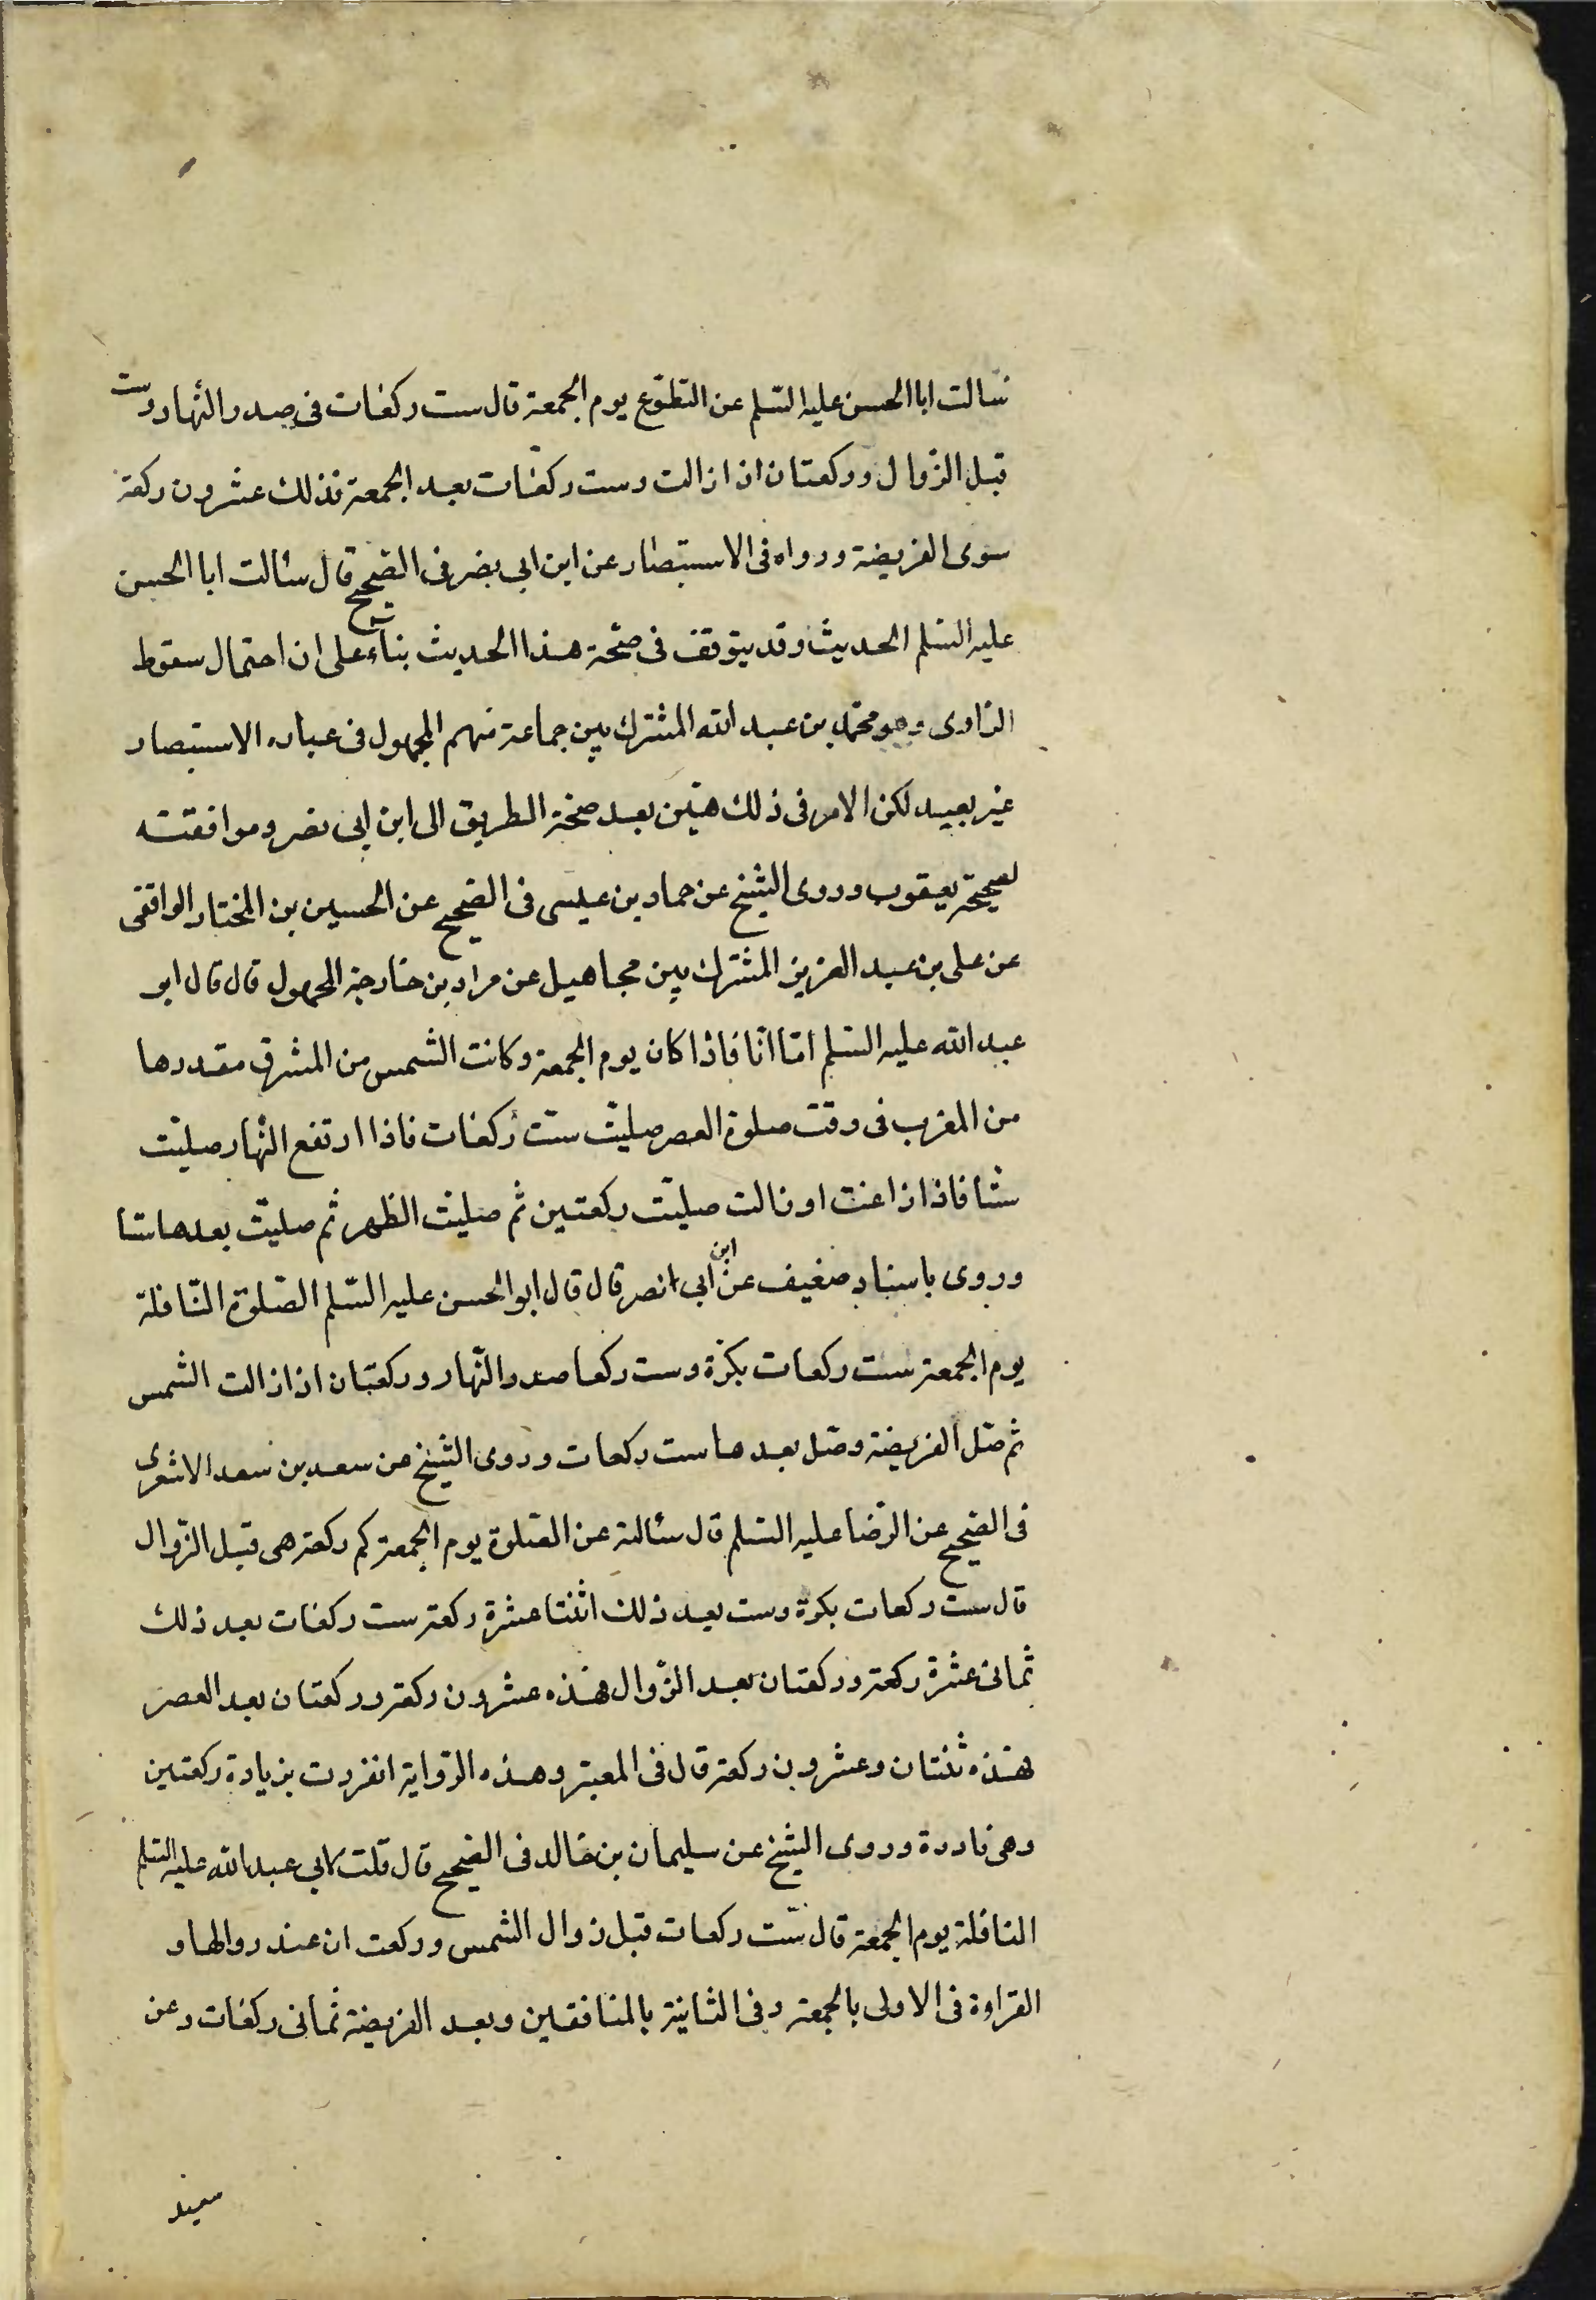 سالت ابا الحسن عليه السلم عن التطوّع يوم الجمعة قال ست ركعات فى صدر النّهار وست
قبل الزّوال وركعتان اذا زالت وست ركعات بعد الجمعة فذلك عشرون ركعة
سوى الفريضة ورواه فى الاستبصار عن ابن ابى نصر فى الصّحيح قال سئالت ابا الحسن
عليه السّلم الحديث وقد يتوقف فى صحّة هذا الحديث بناء على ان احتمال سقوط
الرّاوى وهو محمّد بن عبد الله المشترك بين جماعة منهم المجهول فى عباره الاستبصار
غير بعيد لكن الامر فى ذلك هيّن بعد صحّة الطريق الى ابن ابى نصر وموافقته
لصحيحة يعقوب وروى الشّيخ عن حماد بن عيسى فى الصّحيح عن الحسين بن المختار الواقفى
عن على بن عبد العزيز المشترك بين مجاهيل عن مراد بن خارجة المجهول قال قال ابو
عبد الله عليه السّلم امّا انا فاذا كان يوم الجمعة وكانت الشّمس من المشرق مقدرها
من المغرب فى وقت صلوة العصر صلّيت ستّ ركعات فاذا ارتفع النّهار صلّيت
ستّا فاذا زاغت او زالت صلّيت ركعتين ثم صلّيت الظهر ثم صلّيت بعدها ستا
وروى باسناد ضعيف عن ابن ابى انصر قال قال ابو الحسن عليه السّلم الصّلوة النّافلة
يوم الجمعة ستّ ركعات بكرة وست ركعا صدر النّهار وركعتان اذا زالت الشّمس
ثم صّل الفريضة وصّل بعدها ست ركعات وروى الشّيخ عن سعد بن سعد الاشعرى
فى الصّحيح عن الرّضا عليه السّلم قال سئالته عن الصّلوة يوم الجمعة كم ركعة هى قبل الزّوال
قال ستّ ركعات بكرة وست بعد ذلك اثنتا عشرة ركعة ست ركعات بعد ذلك
ثمانى عشرة ركعة وركعتان بعد الزّوال فهذه عشرون ركعة وركعتان بعد العصر
فهذه ثنتان وعشرون ركعة قال فى المعتبر وهذه الرّواية انفردت بزيادة ركعتين
وهى نادرة وروى الشّيخ عن سليمان بن خالد فى الصّحيح قال قلت لابى عبد الله عليه السّلم
النافلة يوم الجمعة قال ستّ ركعات قبل زوال الشّمس وركعت ان عند زوالها و
القراءة فى الاولى بالجمعة وفى الثانية بالمنافقين وبعد الفريضة ثمانى ركعات وعن
سعيد